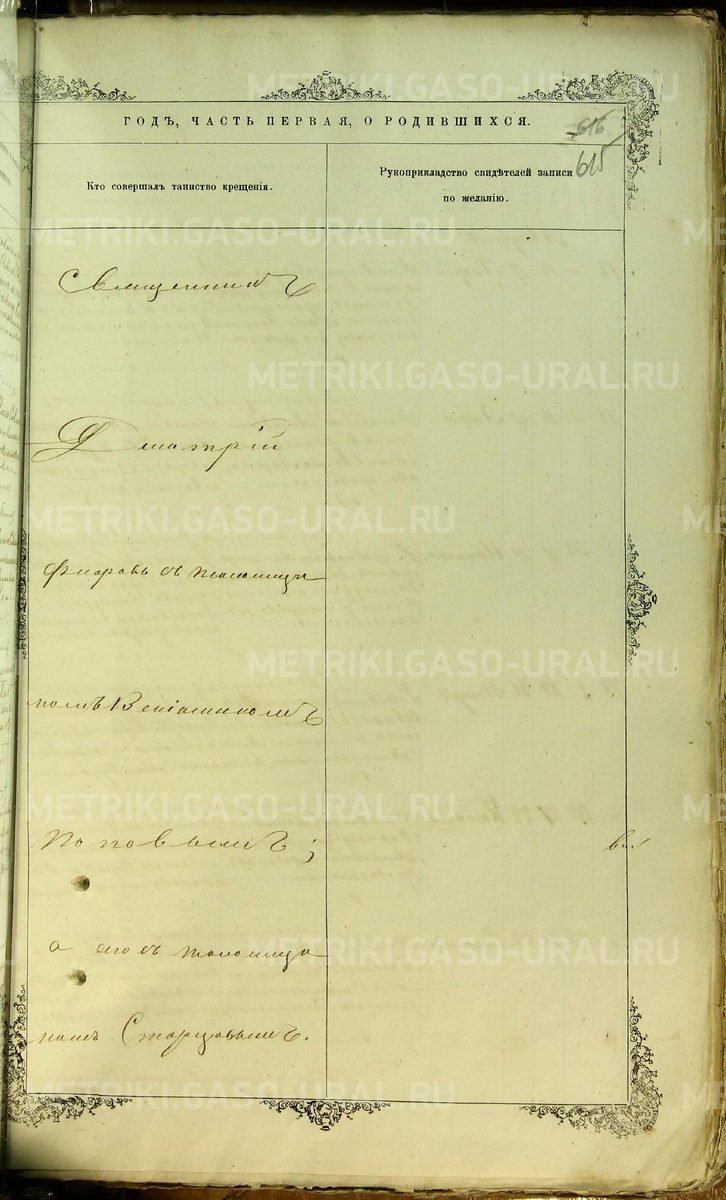 METRIKI.GASO-URAL.RU
ГОДЪ, ЧАСТЬ ПЕРВАЯ, О РОДИВШИХСЯ.
616
615
Кто совершалъ таинство крещенія.
Рукоприкладство свидѣтелей записи
по желанію.
METRIKI.GASO-URAL.RU
Священникъ
METRIKI.GASO-URAL.RU
Дмитрій
METRIKI.GASO-URAL.RU
съ псаломщи
METRIKI.GASO-URAL.RU
комъ Веніаминомъ
METRIKI.GASO-URAL.RU
Поповымъ;
METRIKI.GASO-URAL.RU
а съ псаломщи
комъ Старцовымъ.
METRIKI.GASO-URAL.RU